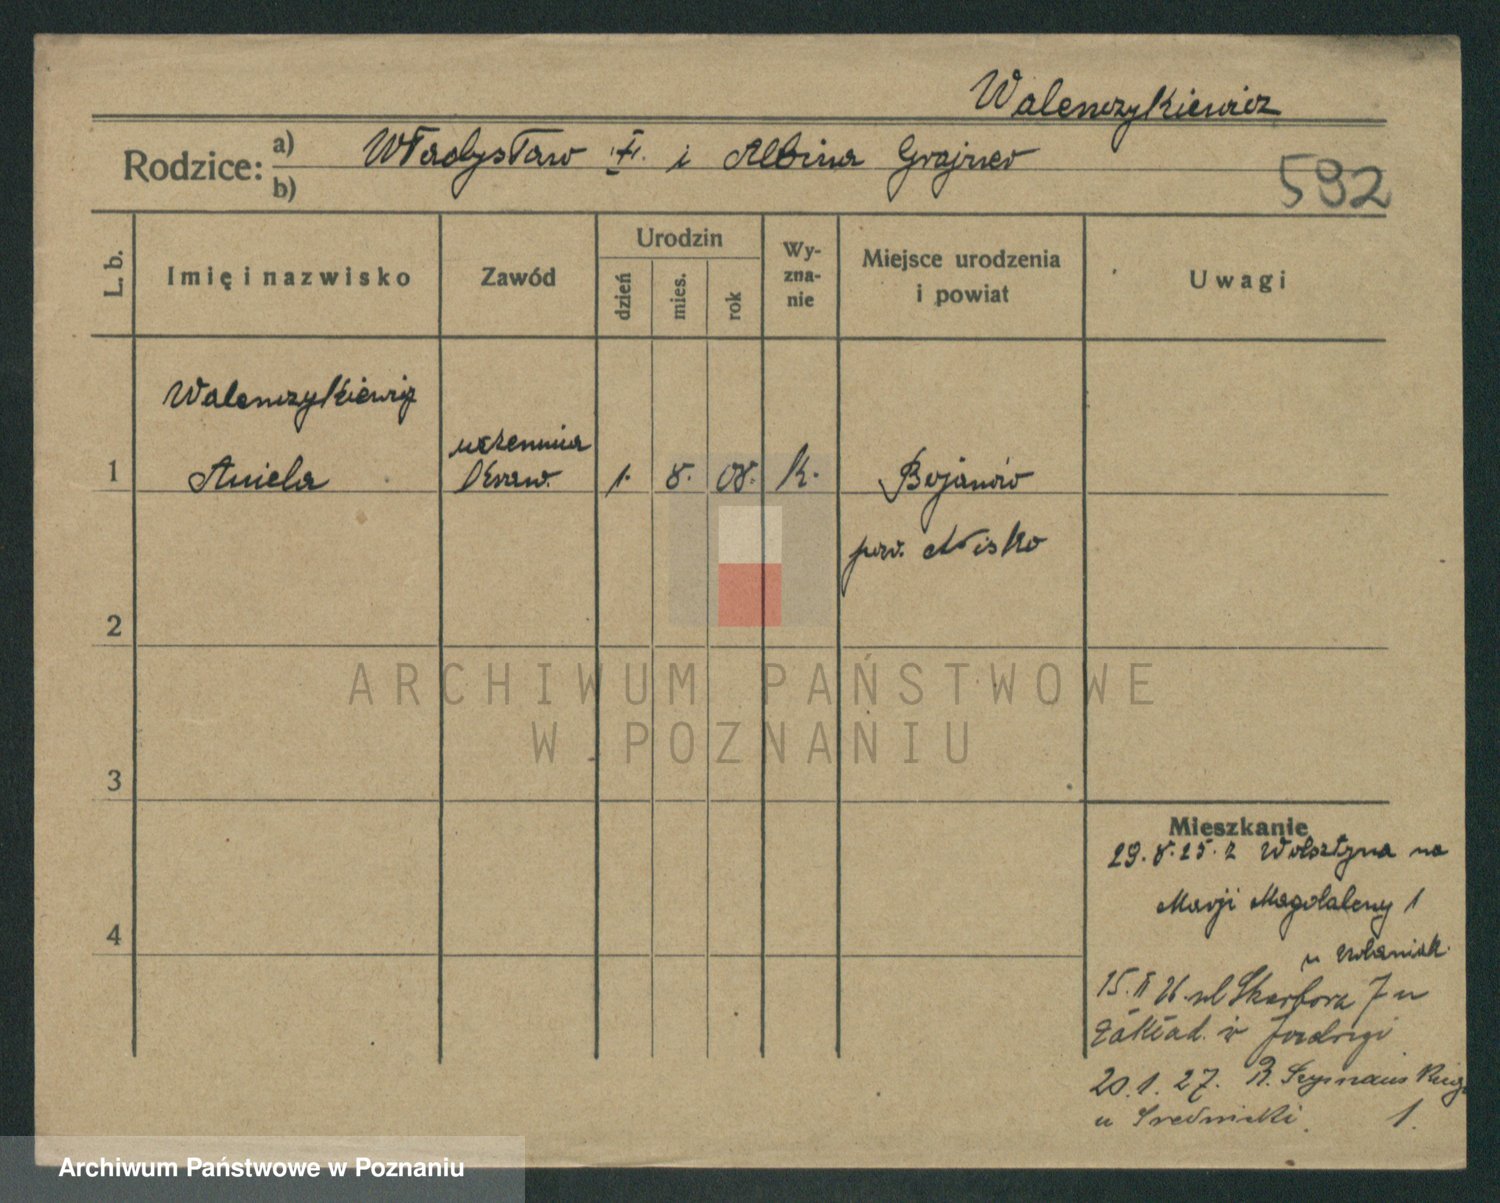 Walenczykiewicz
Rodzice: a) Władysław i Albina Grajner
b)
592
L. b.
Imię i nazwisko
Zawód
Urodzin
dzień
mies.
rok
Wy-
zna-
nie
Miejsce urodzenia
i powiat
Uwagi
Walenczykiewicz
uczennica
1 Aniela kraw. 1. 8. 08. k. Bojanów
pow. Nisko
2
ARCHIWUM PAŃSTWOWE
W POZNANIU
3
Mieszkanie
29.8.25. z Wolsztyna na
Marji Magdaleny 1
4
u Wolaniak
15. II 26. ul Skarbora 7 u
Zakład. św Jadwigi
20.1.27.
u Średnicki 1.
Archiwum Państwowe w Poznaniu